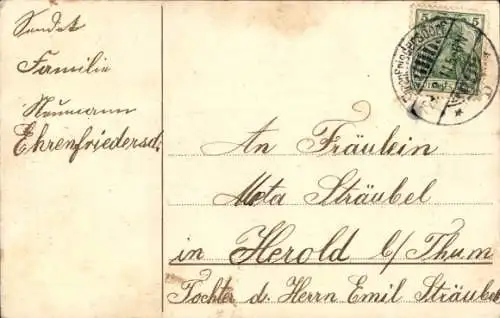 Sendet
Familie
Neumann
Ehrenfriedersd.
5 5
An Fräulein
Meta Sträubel
in Herold b/Thum
Tochter d. Herrn Emil Sträubel